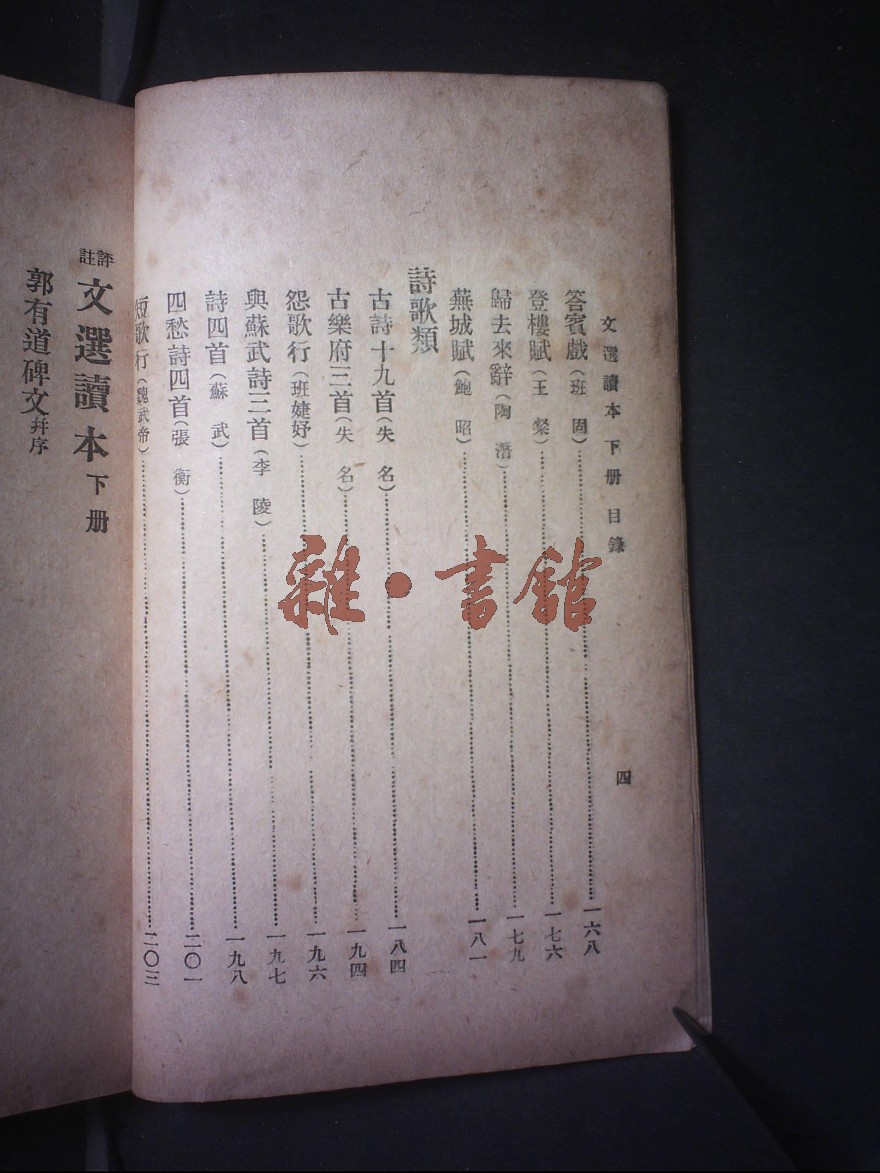 文選讀本 下册 目錄 四
答賓戲(班固)一六八
登樓賦(王粲)一七六
歸去來辭(陶潛)一七九
蕪城賦(鮑昭)一八一
詩歌類
古詩十九首(失名)一八四
古樂府三首(失名)一九四
怨歌行(班婕妤)一九六
與蘇武詩三首(李陵)一九七
詩四首(蘇武)一九八
四愁詩四首(張衡)二〇一
短歌行(魏武帝)二〇三
評註文選讀本 下册
郭有道碑文并序
雜·書館